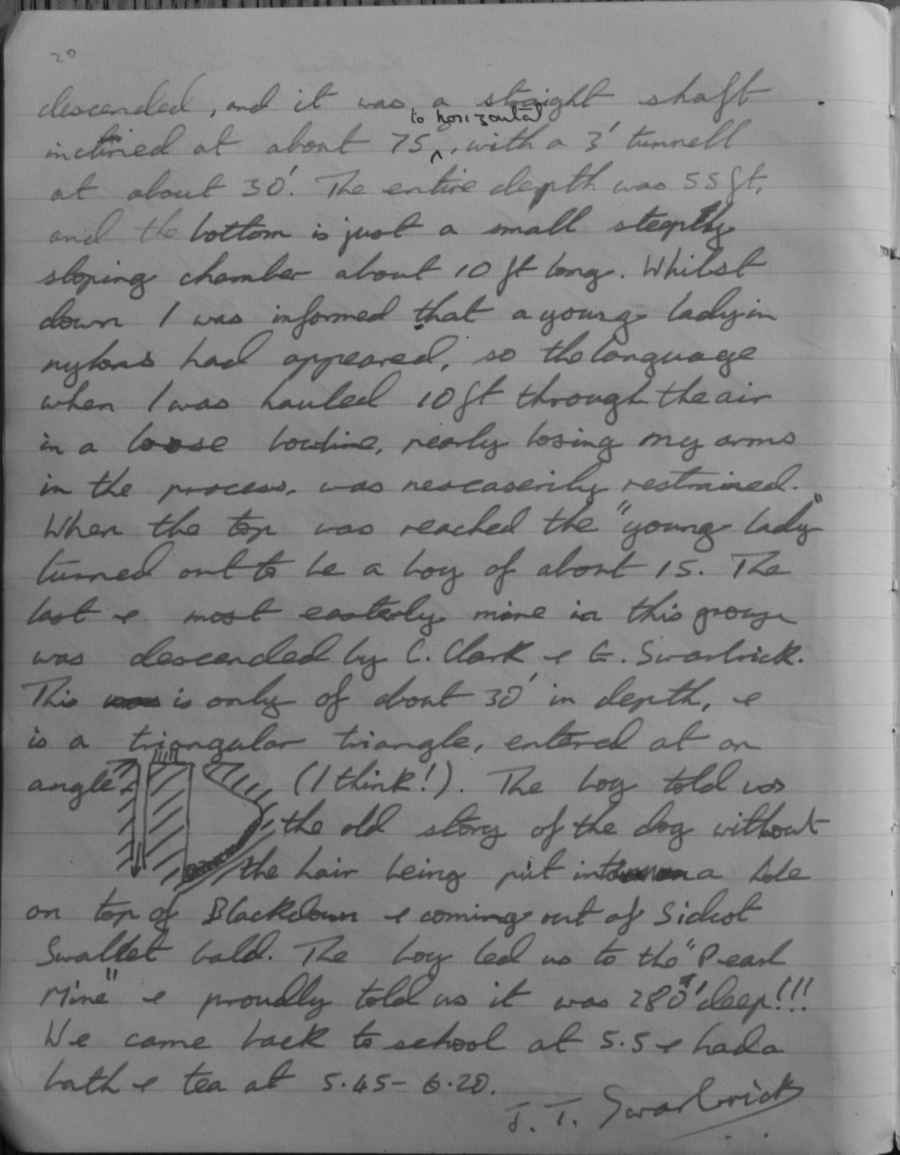 20
descended, and it was a straight shaft
to horizontal
inclined at about 75 ^, with a 3' tunnell
at about 30'. The entire depth was 55 ft,
and the bottom is just a small steeply
sloping chamber about 10 ft long. Whilst
down I was informed that a young lady in
nylons had appeared, so the language
when I was hauled 10 ft through the air
in a loose bowline, nearly losing my arms
in the process, was nescaserily restrained.
When the top was reached the "young lady"
turned out to be a boy of about 15. The
last & most easterly mine in this group
was descended by C. Clark & G. Swarbrick.
This is only of about 30' in depth, &
is a triangular triangle, entered at an
angle (I think!). The boy told us
the old story of the dog without
the hair being put into a hole
on top of Blackdown & coming out of Sidcot
Swallet bald. The boy led us to the "Pearl
Mine" & proudly told us it was 280' deep!!!
We came back to school at 5.5 & had a
bath & tea at 5.45-6.20.
J. T. Swarbrick